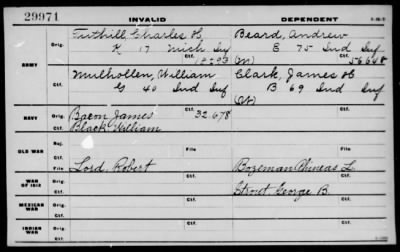 29971 INVALID DEPENDENT
Orig. Tuthill Charles H. Beard, Andrew
K 17 Mich Inf E 75 Ind Inf
Ctf. Ctf. (M) 56648
ARMY
Mulhollen, William Clark, James H
Orig. G 40 Ind Inf B 69 Ind Inf
Ctf.
NAVY Orig. Bacon James Ctf. 32.678
Ctf. Black William
OLD WAR Rej. File File
File Lord, Robert Bozeman Phineas L.
WAR OF 1812 Orig. Ctf. Ctf.
Ctf. Strout George B.
MEXICAN WAR Orig. Ctf. Ctf.
Ctf.
INDIAN WAR Orig. Ctf. Ctf.
Ctf.